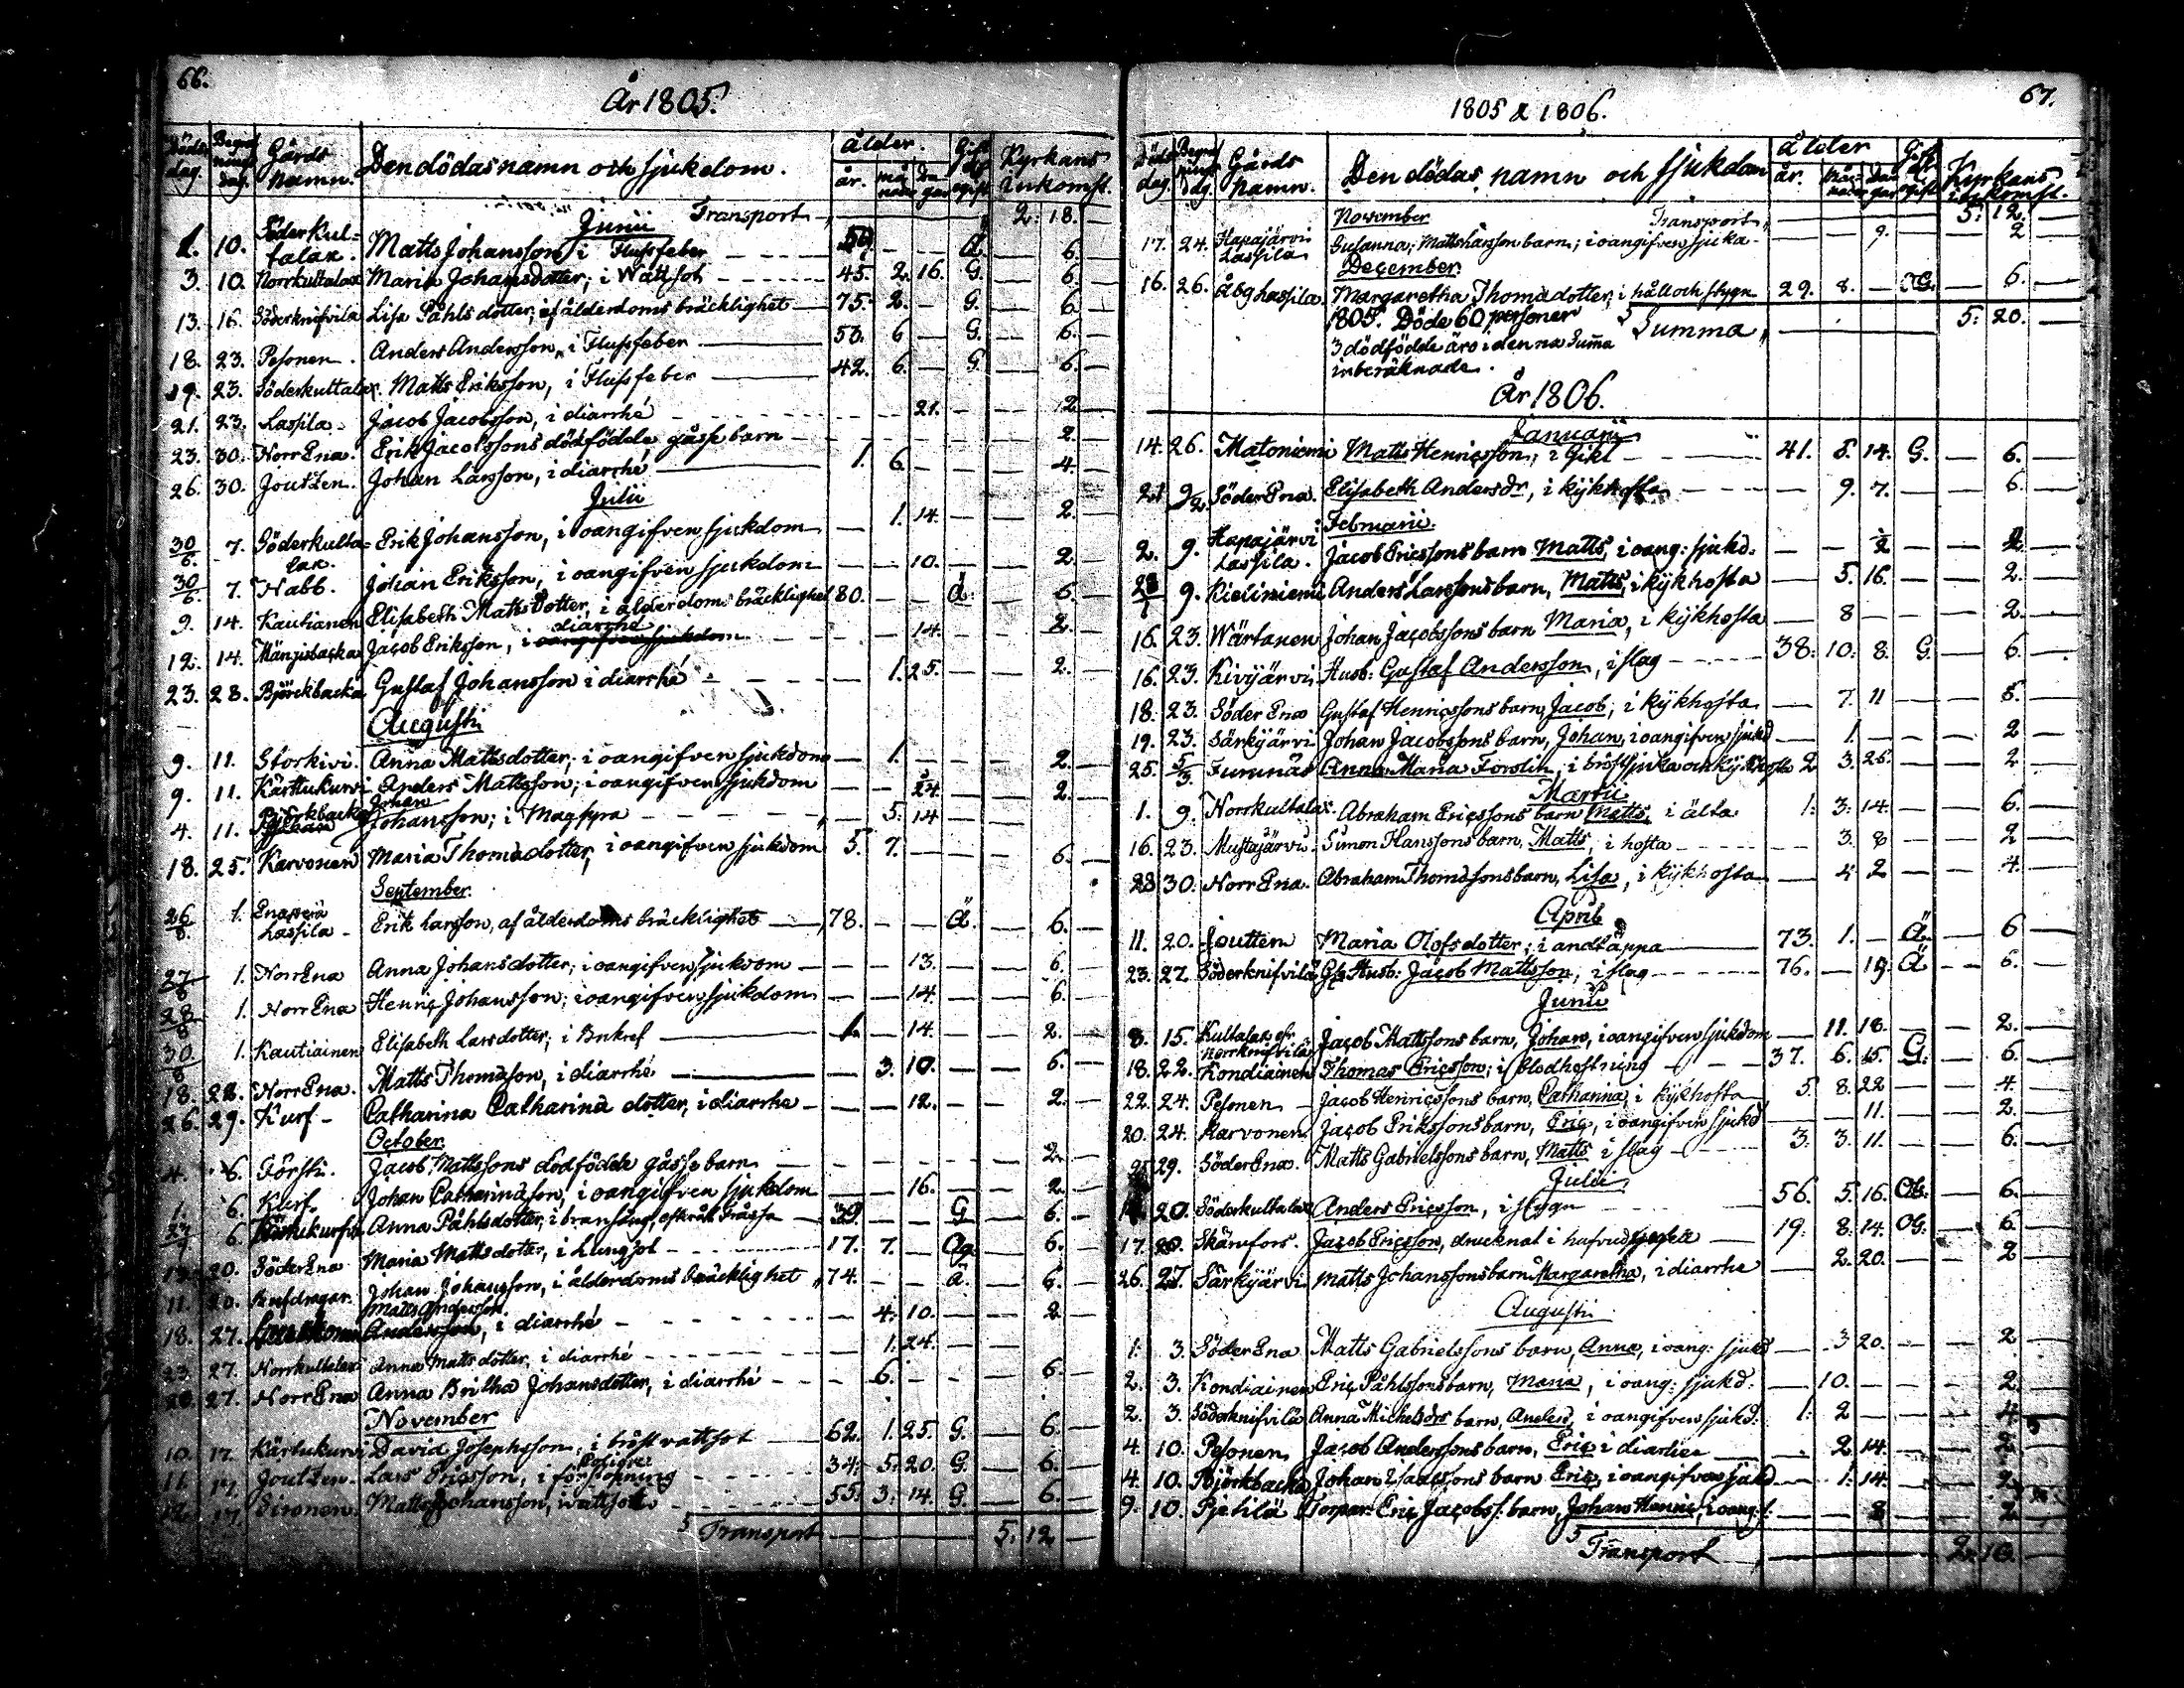 66.
År 1805.
Döds dag. Begraf nings dag. Gårds namn. Den dödas namn och sjukdom. ålder år. må nader da gar Gift el. ogift Kyrkans Inkomst.
Junii Transport 2: 18.
1. 10. Söderkul=
talax. Matts Johansson i Flussfeber — — Ä — 6.
3. 10. Norrkultalax Maria Johansdotter; i Wattsot 45. 2. 16. G. 6.
13. 16. Söderknifvila Lisa Påhls dotter; af ålderdoms bräcklighet 75. 2. — G. 6.
18. 23. Pesonen. Anders Andersson, i Flussfeber 53. 6 — G. 6.
19. 23. Söderkultalax. Matts Eriksson, i Flussfeber 42. 6. — G. 6.
21. 23. Lassila. Jacob Jacobsson, i diarrhé 21. — 2
23. 30. Norr Ena. Erik Jacobssons dödfödde gåsse barn 2.
26. 30. Joutzen. Johan Larsson, i diarrhé 1. 6. — 4.
Julii
30/6. 7. Söderkulta=
lax. Erik Johansson, i oangifven sjukdom — 1. 14. — 2.
30/6. 7. Nabb. Johan Eriksson, i oangifven sjukdom — 10. — 2
9. 14. Kautianen Elisabeth Matts dotter, i ålderdoms bräcklighet 80. — — ä. 6.
12. 14. Mängsbacka Jacob Eriksson, i oangifven sjukdom diarrhé 14. — 2.
23. 28. Björckbacka Gustaf Johansson i diarrhé 1. 25. — 2.
Augusti
9. 11. Storkivi. Anna Mattsdotter; i oangifven sjukdom — 1. — 2.
9. 11. Kärttukurvi Anders Mattsson; i oangifven sjukdom — 24. — 2.
4. 11. Björkbacka Johan Johansson; i Magsyra 5. 14
18. 25. Karvonen Maria Thomædotter, i oangifven sjukdom 5. 7. — 6.
September.
26/8. 1. Enaperä
Lassila Erik Larsson, af ålderdoms bräcklighet 78. — — Ä. 6.
27/8 1. Norr Ena Anna Johansdotter; i oangifven sjukdom — 13. — 6.
28/8 1. Norr Ena Henric Johansson; i oangifven sjukdom — 14. — 6.
30/8 1. Kautiainen Elisabeth Larsdotter; i 1. — 14. — 2.
18. 22. Norr Ena. Matts Thomasson, i diarrhé 3. 10. — 6.
26. 29. Kurf Catharina Catharinæ dotter, i diarrhe 12. — 2.
October.
4. 6. Försti. Jacob Mattssons dödfödda gåsse barn 2.
1. 6. Kurf. Johan Catharinæson, i oangifven sjukdom — 16. — 2
6. Anna Påhlsdotter, i barnsäng, 39. — G 6.
20. Söder Ena Maria Matts doter, i Lungsot 17. 7. — Og. 6.
11. 20. Johan Johansson, i ålderdoms bräcklighet 74. — — ä. 6.
18. 27. Matts Andersson. Andersson, i diarrhé 4. 10. — 2
23. 27. Norrkultalax Anna Matts dotter, i diarrhé 1. 24.
27. Norr Ena Anna Britha Johansdotter, i diarrhé 6. — 6.
November
10. 17. Kärtukurvi David Josephsson, i bröst vattsot 62. 1. 25. G. 6.
11. 17. Joutzen. Lars Ericsson, i förstoppning 34. 5. 20. G. 6.
17. Sironen. Matts Johansson, i vattsott 55. 3. 14. G 6.
Transport 5. 12
1805 & 1806.
67.
Döds dag. Begraf nings dg. Gårds namn. Den dödas namn och sjukdom ålder år. må nader da gar Gift el. ogift Kyrkans inkomst.
November. Transport 5: 12.
17. 24. Hapajärvi
Lassila Susanna, Matts Larsson barn; i oangifven sjuka 9. 2
December.
16. 26. Åbghassila. Margaretha Thomædotter; i håll och stygn 29. 8. — OG. 6.
1805. Döde 60 personer Summa 5: 20.
3 dödfödde äro i denna Summa
inberäknade.
År 1806.
Januarii
14. 26. Matoniemi Matts Henricsson; i Gikt 41. 8. 14. G. 6.
21 9/2 Söder Ena. Elisabeth Andersdr, i kykhosta 9. 7. 6.
Februarii.
2. 9. Hapajärvi
Lassila. Jacob Ericssons barn Matts, i oang: sjukd. 1/2 2
28/1 9. Kieliniemi Anders Larssons barn, Matts, i kykhosta 5. 16. 2.
16. 23. Wärtanen Johan Jacobssons barn Maria, i kykhosta 8 2.
16. 23. Kivijärvi Husb: Gustaf Andersson, i slag 38. 10. 8. G. 6.
18. 23. Söder Ena Gustaf Henricssons barn, Jacob; i kykhosta 7. 11 6.
19. 23. Särkijärvi Johan Jacobssons barn, Johan, i oangifven sjukd 1. 2
25. 5/3 Furunäs Anna Maria Forslin, i bröstsjuka och kykhosta 2 3. 25. 2
Martii
1. 9. Norrkultalax. Abraham Ericssons barn Matts, i älta 1: 3: 14. 6.
16. 23. Mustajärvi. Simon Hanssons barn, Matts, i hosta 3. 8 2
28 30. Norr Ena. Abraham Thomassons barn, Lisa, i kykhosta 4 2 4.
April
11. 20. Joutten Maria Olofsdotter; i andtäppa 73. 1. — Ä. 6
23. 27. Söderknifvilä Gla Husb: Jacob Mattsson, i slag 76. — 19. Ä 6.
Junii
8. 15. Kultalax el.
Norrknifvilä Jacob Mattssons barn, Johan, i oangifven sjukdom 11. 18. 2.
18. 22. Kondiainen Thomas Ericsson; i blodhostning 37. 6. 15. G. 6.
22. 24. Pesonen Jacob Henricssons barn, Catharina, i kykhosta 5. 8. 22 4.
20. 24. Karvonen Jacob Erikssons barn, Eric, i oangifven sjukd 11. 2.
25 29. Söder Ena. Matts Gabrielssons barn, Matts i slag 3. 3. 11. 6.
Julii
20. Söderkultalax Anders Ericsson, i stygn 56. 5. 16. OG. 6.
17. 20. Skärsfors. Jacob Ericsson, drucknat i hufvudsjuka 19: 8. 14. OG. 6.
26. 27. Särkijärvi Matts Johanssons barn Margaretha, i diarrhe 2. 20. 2
Augusti
1. 3. Söder Ena Matts Gabrielssons barn, Anna, i oang: sjukd 3 20. 2
2. 3. Kondiainen Eric Påhlssons barn, Maria, i oang: sjukd: 10. 2.
2. 3. Söderknifvilä Anna Michelsdrs barn, Anders, i oangifven sjukd: 1. 2 4.
4. 10. Pesonen Jacob Anderssons barn, Eric i diarhee 2 14. 2.
4. 10. Björkbacka Johan Isaacssons barn Eric, i oangifven sjukd 1. 14. 2
9. 10. Pjetilä Torpar: Eric Jacobss. barn, Johan Henric, i oang. s. 8 2
Transport 2. 10.